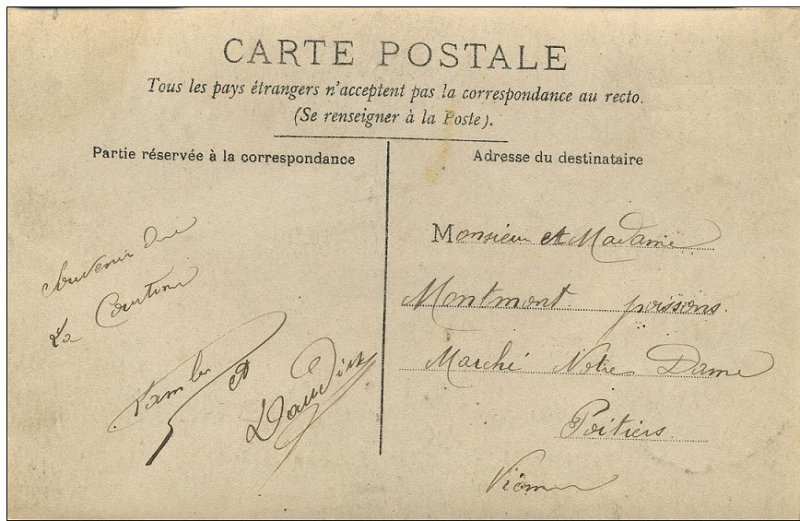 CARTE POSTALE
Tous les pays étrangers n'acceptent pas la correspondance au recto.
(Se renseigner à la Poste).
Partie réservée à la correspondance
Souvenir
La
et
Adresse du destinataire
Monsieur et Madame
Montmont poissons
Marché Notre Dame
Poitiers
Vienne